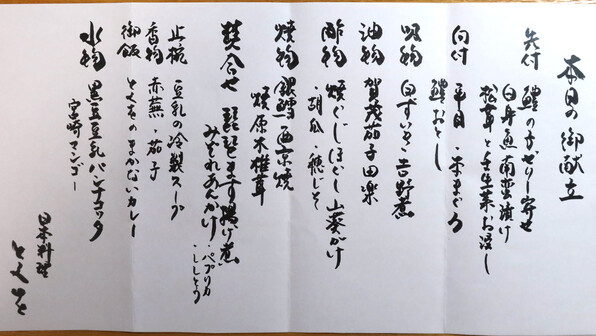 本日の御献立
先付 鱧の子ゼリー寄せ
白身魚南蛮漬け
松茸と壬生菜お浸し
向付 平目・本まぐろ
鱧おとし
吸物 白ずいき吉野煮
油物 賀茂茄子田楽
酢物 焼ぐじほぐし山葵がけ
・胡瓜・穂じそ
焼物 銀鱈西京焼
焼原木椎茸
焚合せ 琵琶ます揚げ煮
みぞれあんかけ・パプリカ
・ししとう
止椀 豆乳の冷製スープ
香物 赤蕪・茄子
御飯 とくをのまかないカレー
水物 黒豆豆乳パンナコッタ
宮崎マンゴー
日本料理
とくを